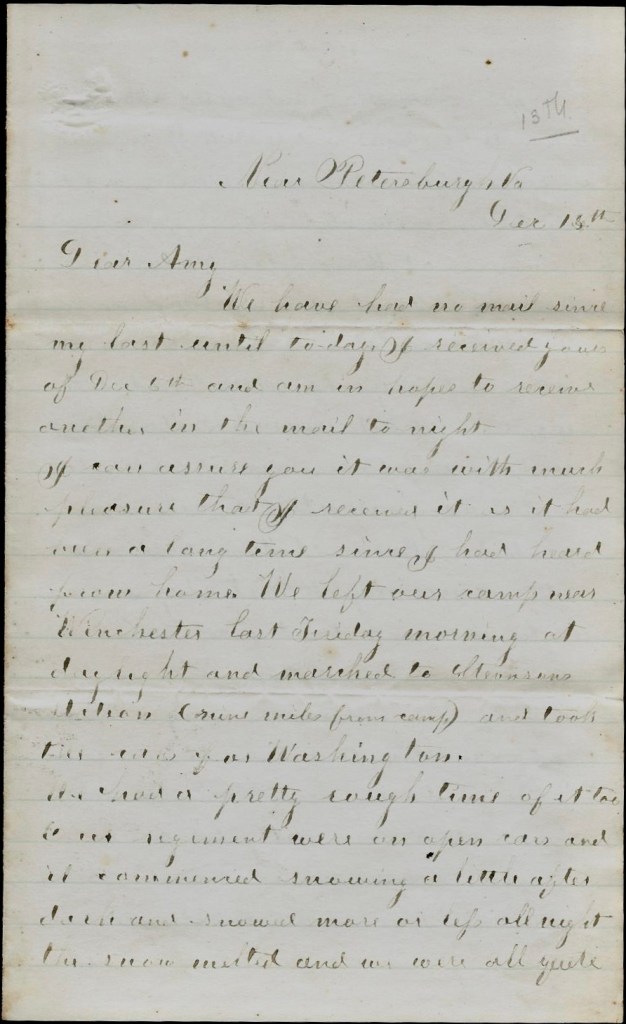 13th
Near Petersburg Va
Dec 13th
Dear Amy
We have had no mail since
my last until to-day I received yours
of Dec 6th and am in hopes to receive
another in the mail to night
I can assure you it was with much
pleasure that I received it as it had
been a long time since I had heard
from home. We left our camp near
Winchester last Friday morning at
daylight and marched to Stevensons
Station (nine miles from camp) and took
the cars for Washington.
We had a pretty rough time of it too
regiment were on open cars and
it commenced snowing a little after
dark and snowed more or less all night
the snow melted and we were all quite